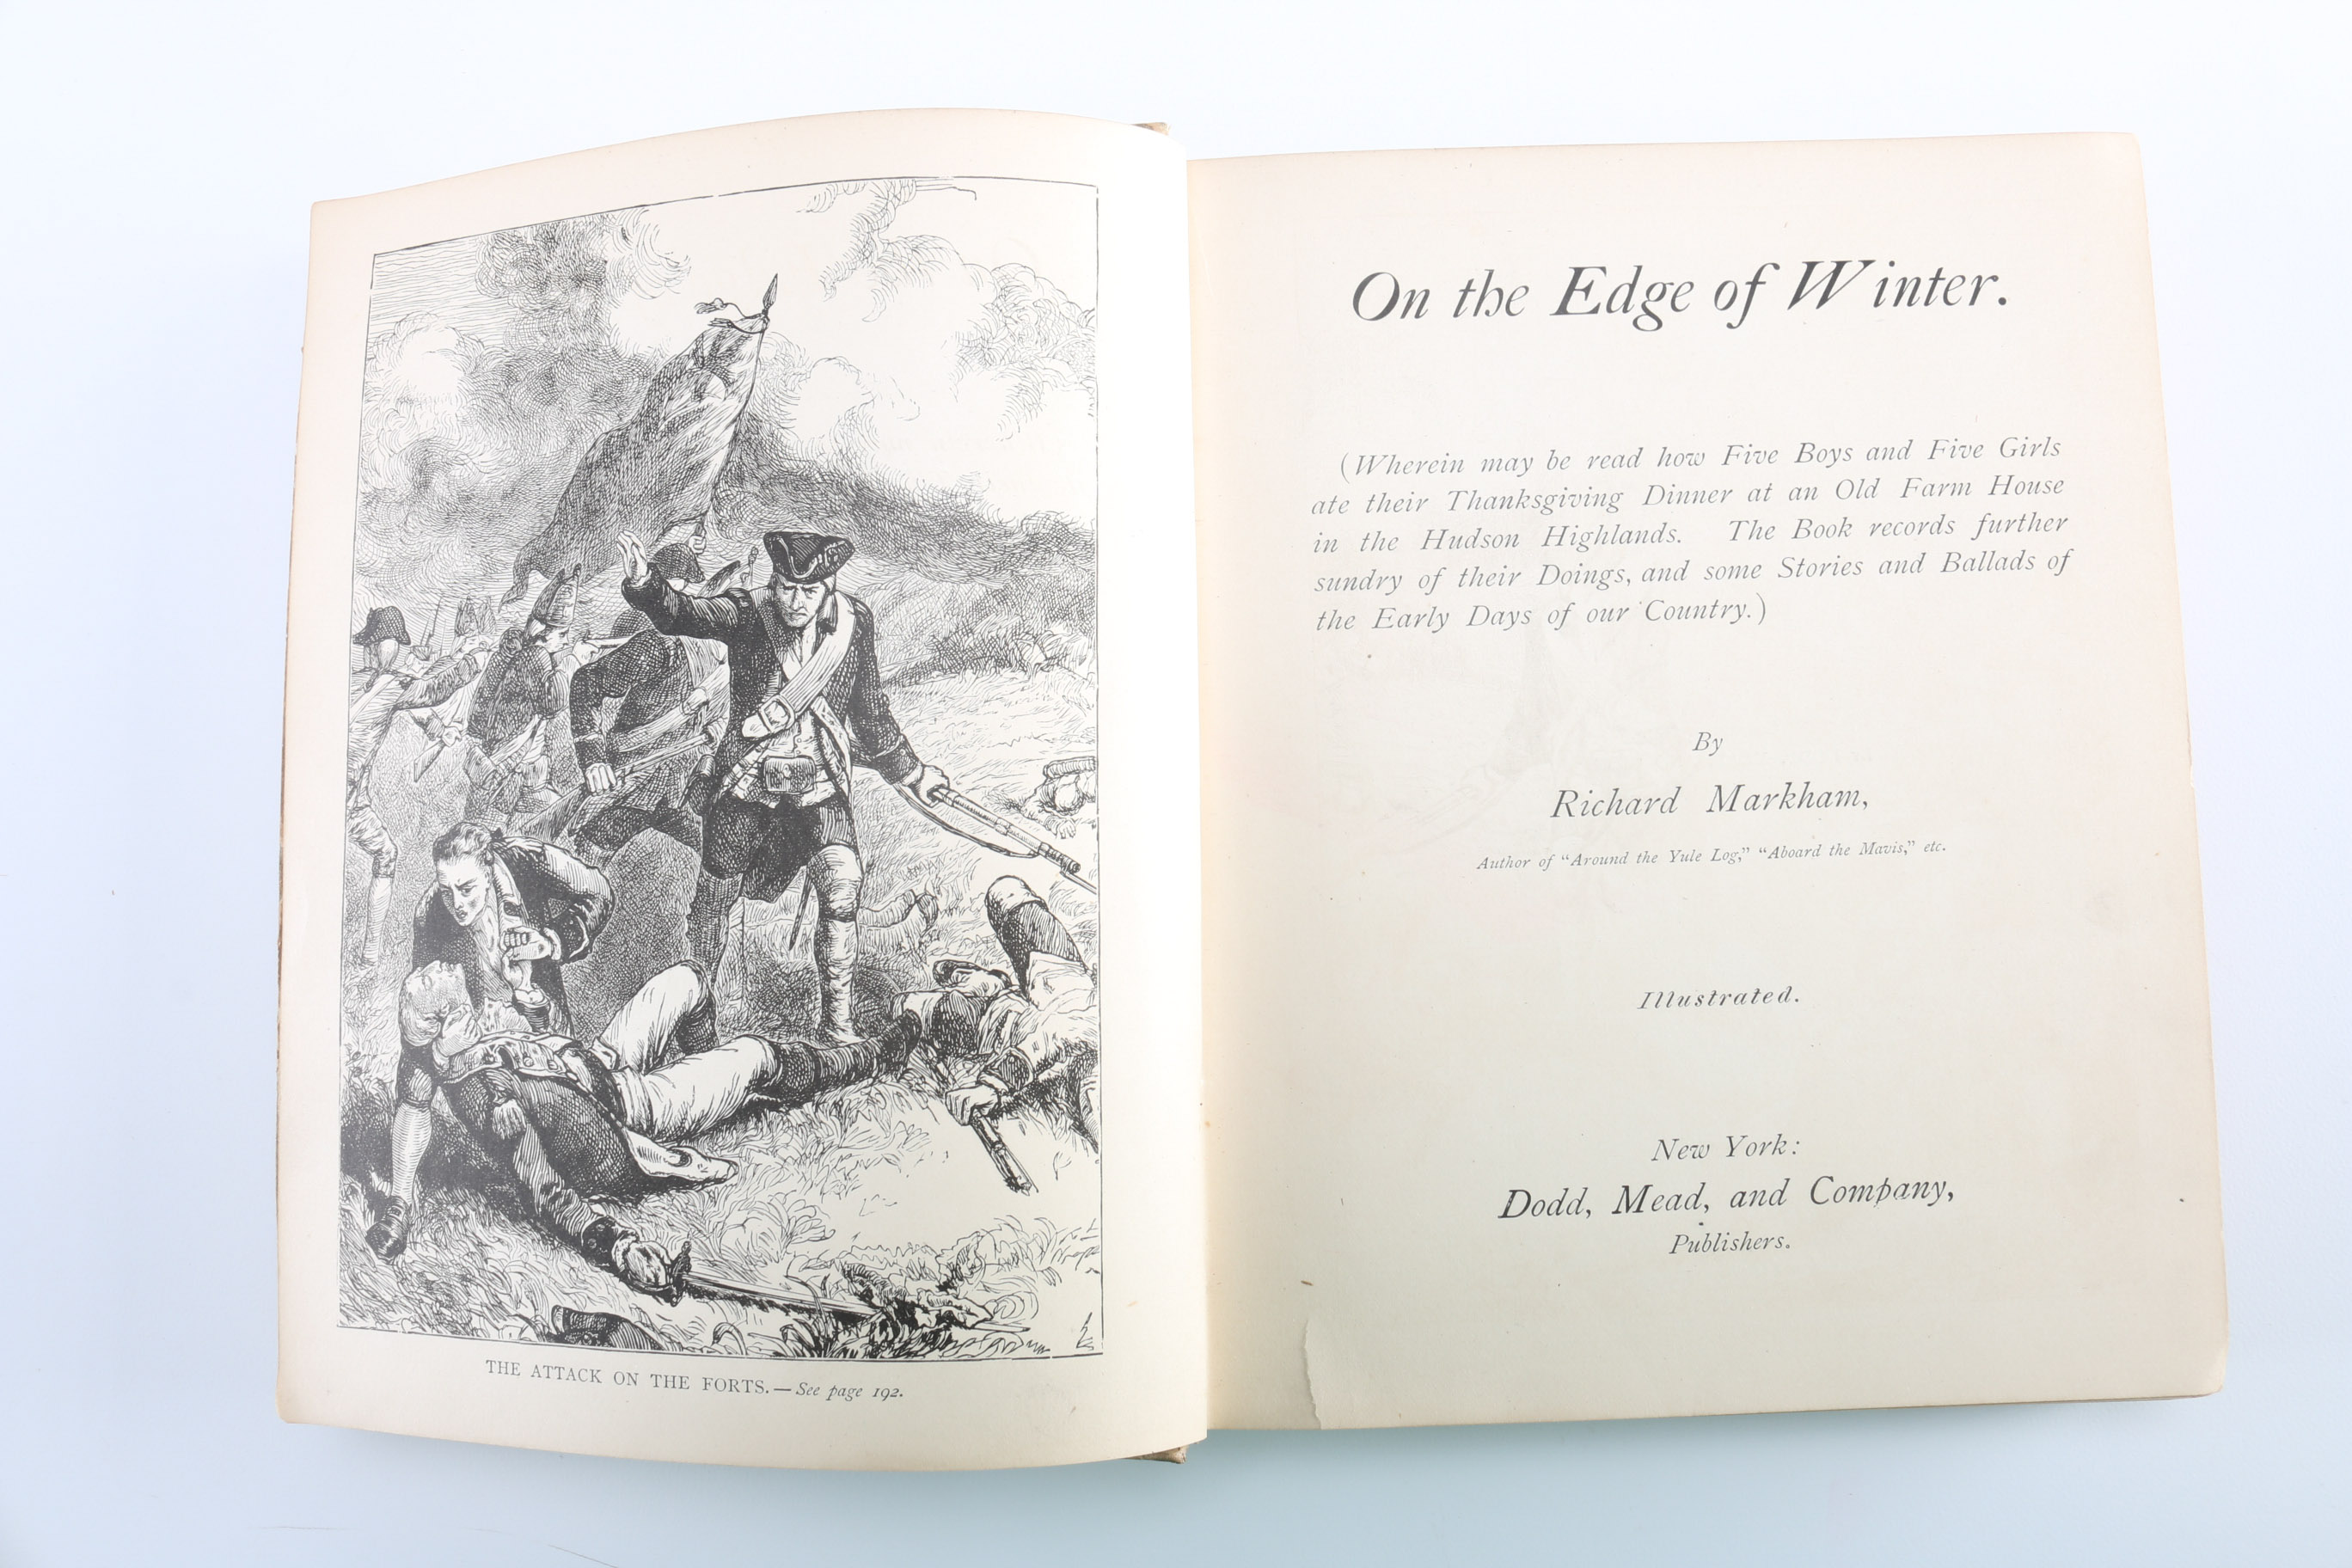 THE ATTACK ON THE FORTS.—See page 192.
On the Edge of Winter.
(Wherein may be read how Five Boys and Five Girls
ate their Thanksgiving Dinner at an Old Farm House
in the Hudson Highlands. The Book records further
sundry of their Doings, and some Stories and Ballads of
the Early Days of our Country.)
By
Richard Markham,
Author of “Around the Yule Log,” “Aboard the Mavis,” etc.
Illustrated.
New York:
Dodd, Mead, and Company,
Publishers.